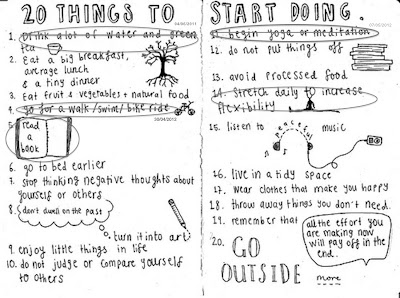 20 THINGS TO
04/05/2011
1. Drink alot of water and green
tea
2. Eat a big breakfast,
average lunch
& a tiny dinner
3. Eat fruit & vegetables + natural food
4. go for a walk/swim/bike ride
30/04/2012
5. read
a
book
6. go to bed earlier
7. stop thinking negative thoughts about
yourself or others
8. don't dwell on the past
turn it into art
9. enjoy little things in life
10. do not judge or compare yourself
to others
START DOING.
11. begin yoga or meditation
12. do not put things off
13. avoid processed food
14. stretch daily to increase
flexibility
15. listen to peaceful music
16. live in a tidy space
17. wear clothes that make you happy
18. throw away things you don't need.
19. remember that
all the effort you
are making now
will pay off in the
end.
20. GO
OUTSIDE
more